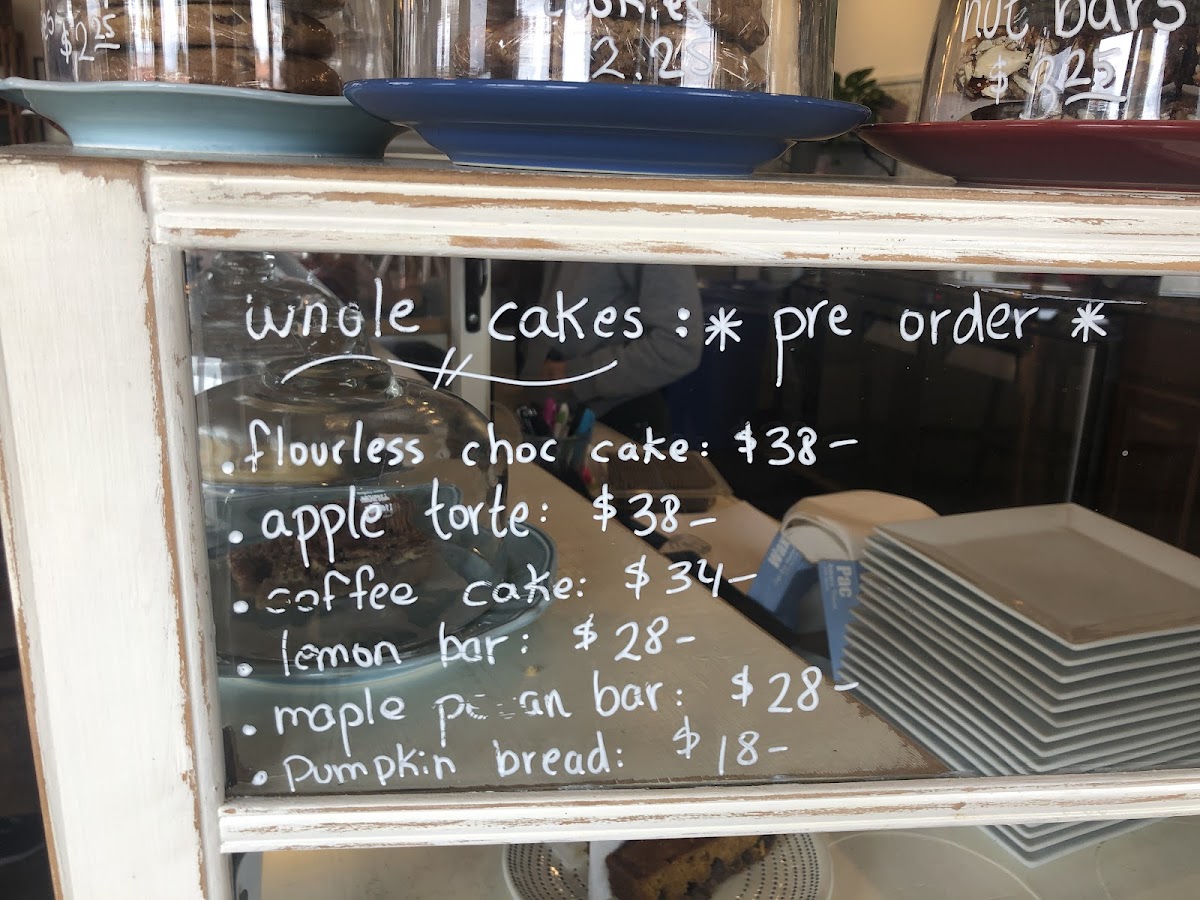 $2.25
cookies
2.25
nut bars
$
whole cakes: * pre order *
. flourless choc cake: $38-
. apple torte: $38-
. coffee cake: $34-
. lemon bar: $28-
. maple pecan bar: $28-
. pumpkin bread: $18-
Pac